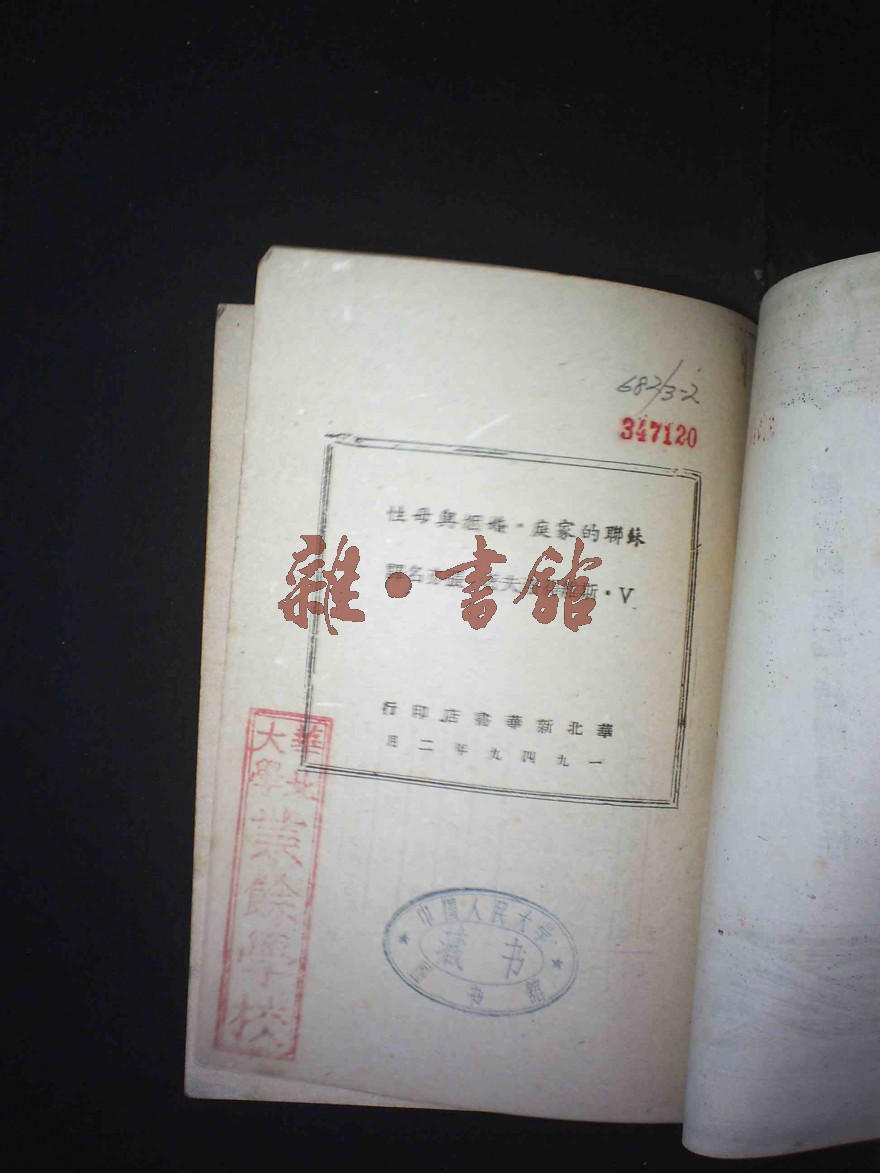 682/3-2
347120
蘇聯的家庭·婚姻與母性
V·斯 夫 名譯
雜·書館
華北新華書店印行
一九四九年二月
華北大學
業餘學校
中国人民大学
藏书
图书馆